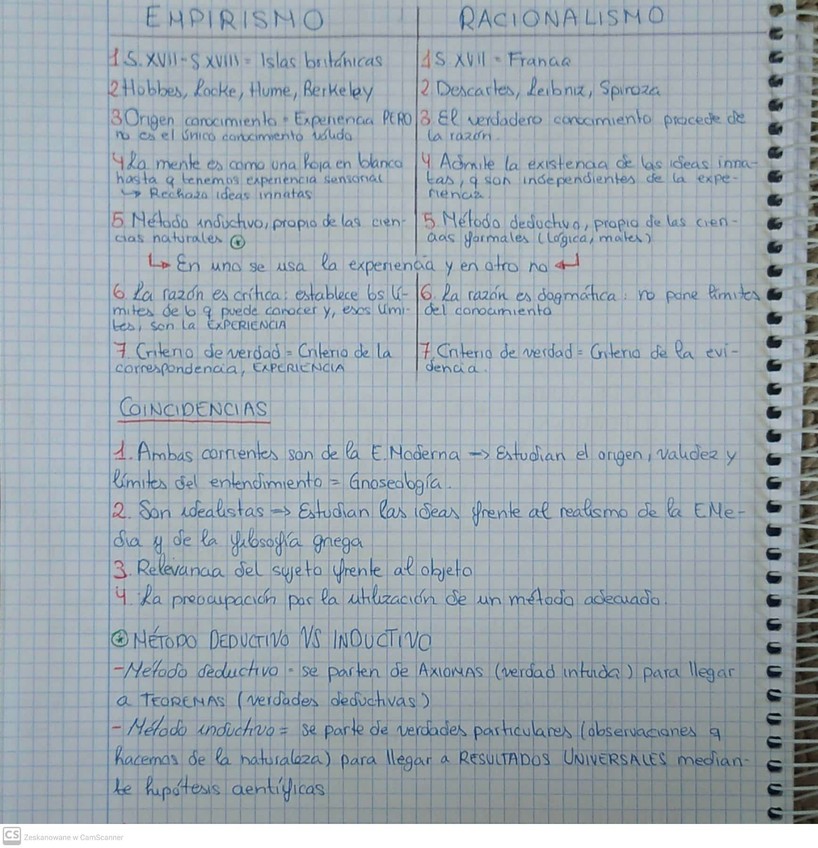 EMPIRISMO
1 S. XVII - S XVIII = Islas británicas
2 Hobbes, Locke, Hume, Berkeley
3 Origen conocimiento = Experiencia PERO
no es el único conocimiento válido
4 La mente es como una hoja en blanco
hasta q tenemos experiencia sensorial
↳ Rechaza ideas innatas
5 Método inductivo, propio de las cien-
cias naturales ⊛
RACIONALISMO
1 S XVII = Francia
2 Descartes, Leibniz, Spinoza
3. El verdadero conocimiento procede de
la razón
4 Admite la existencia de las ideas inna-
tas, q son independientes de la expe-
riencia
5. Método deductivo, propio de las cien-
cias formales (lógica, mates)
↳ En uno se usa la experiencia y en otro no ↲
6 La razón es crítica: establece los lí-
mites de lo q puede conocer y, esos lími-
tes, son la EXPERIENCIA
7. Criterio de verdad = Criterio de la
correspondencia, EXPERIENCIA
6. La razón es dogmática: no pone límites
del conocimiento
7. Criterio de verdad = Criterio de la evi-
dencia.
COINCIDENCIAS
1. Ambas corrientes son de la E. Moderna → Estudian el origen, validez y
límites del entendimiento = Gnoseología.
2. Son idealistas → Estudian las ideas frente al realismo de la EMe-
dia y de la filosofía griega
3. Relevancia del sujeto frente al objeto
4. La preocupación por la utilización de un método adecuado.
⊛ MÉTODO DEDUCTIVO VS INDUCTIVO
- Método deductivo = se parten de AXIOMAS (verdad intuida) para llegar
a TEOREMAS (verdades deductivas)
- Método inductivo = se parte de verdades particulares (observaciones q
hacemos de la naturaleza) para llegar a RESULTADOS UNIVERSALES median-
te hipótesis científicas
CS Zeskanowane w CamScanner